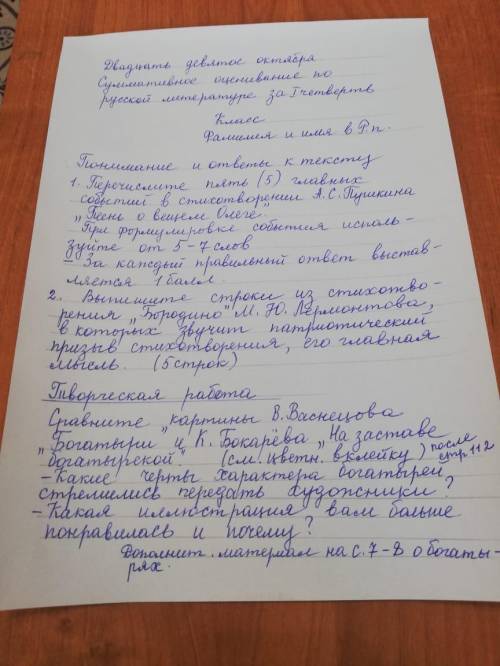 Двадцать девятое октября
Суммативное оценивание по
русской литературе за I четверть
Класс
Фамилия и имя в Р.п.
Понимание и ответы к тексту
1. Перечислите пять (5) главных
событий в стихотворении А.С.Пушкина
„Песнь о вещем Олеге".
При формулировке события исполь-
зуйте от 5-7 слов
За каждый правильный ответ выстав-
ляется 1 балл.
2. Выпишите строки из стихотво-
рения „Бородино" М.Ю.Лермонтова,
в которых звучит патриотический
призыв стихотворения, его главная
мысль. (5 строк)
Творческая работа
Сравните картины В.Васнецова
„Богатыри" и К.Бокарёва „На заставе
богатырской". (см.цветн.вклейку) после стр.112
- Какие черты характера богатырей
стремились передать художники?
- Какая иллюстрация вам больше
понравилась и почему?
Дополнит. материал на с.7-8 о богаты-
рях.